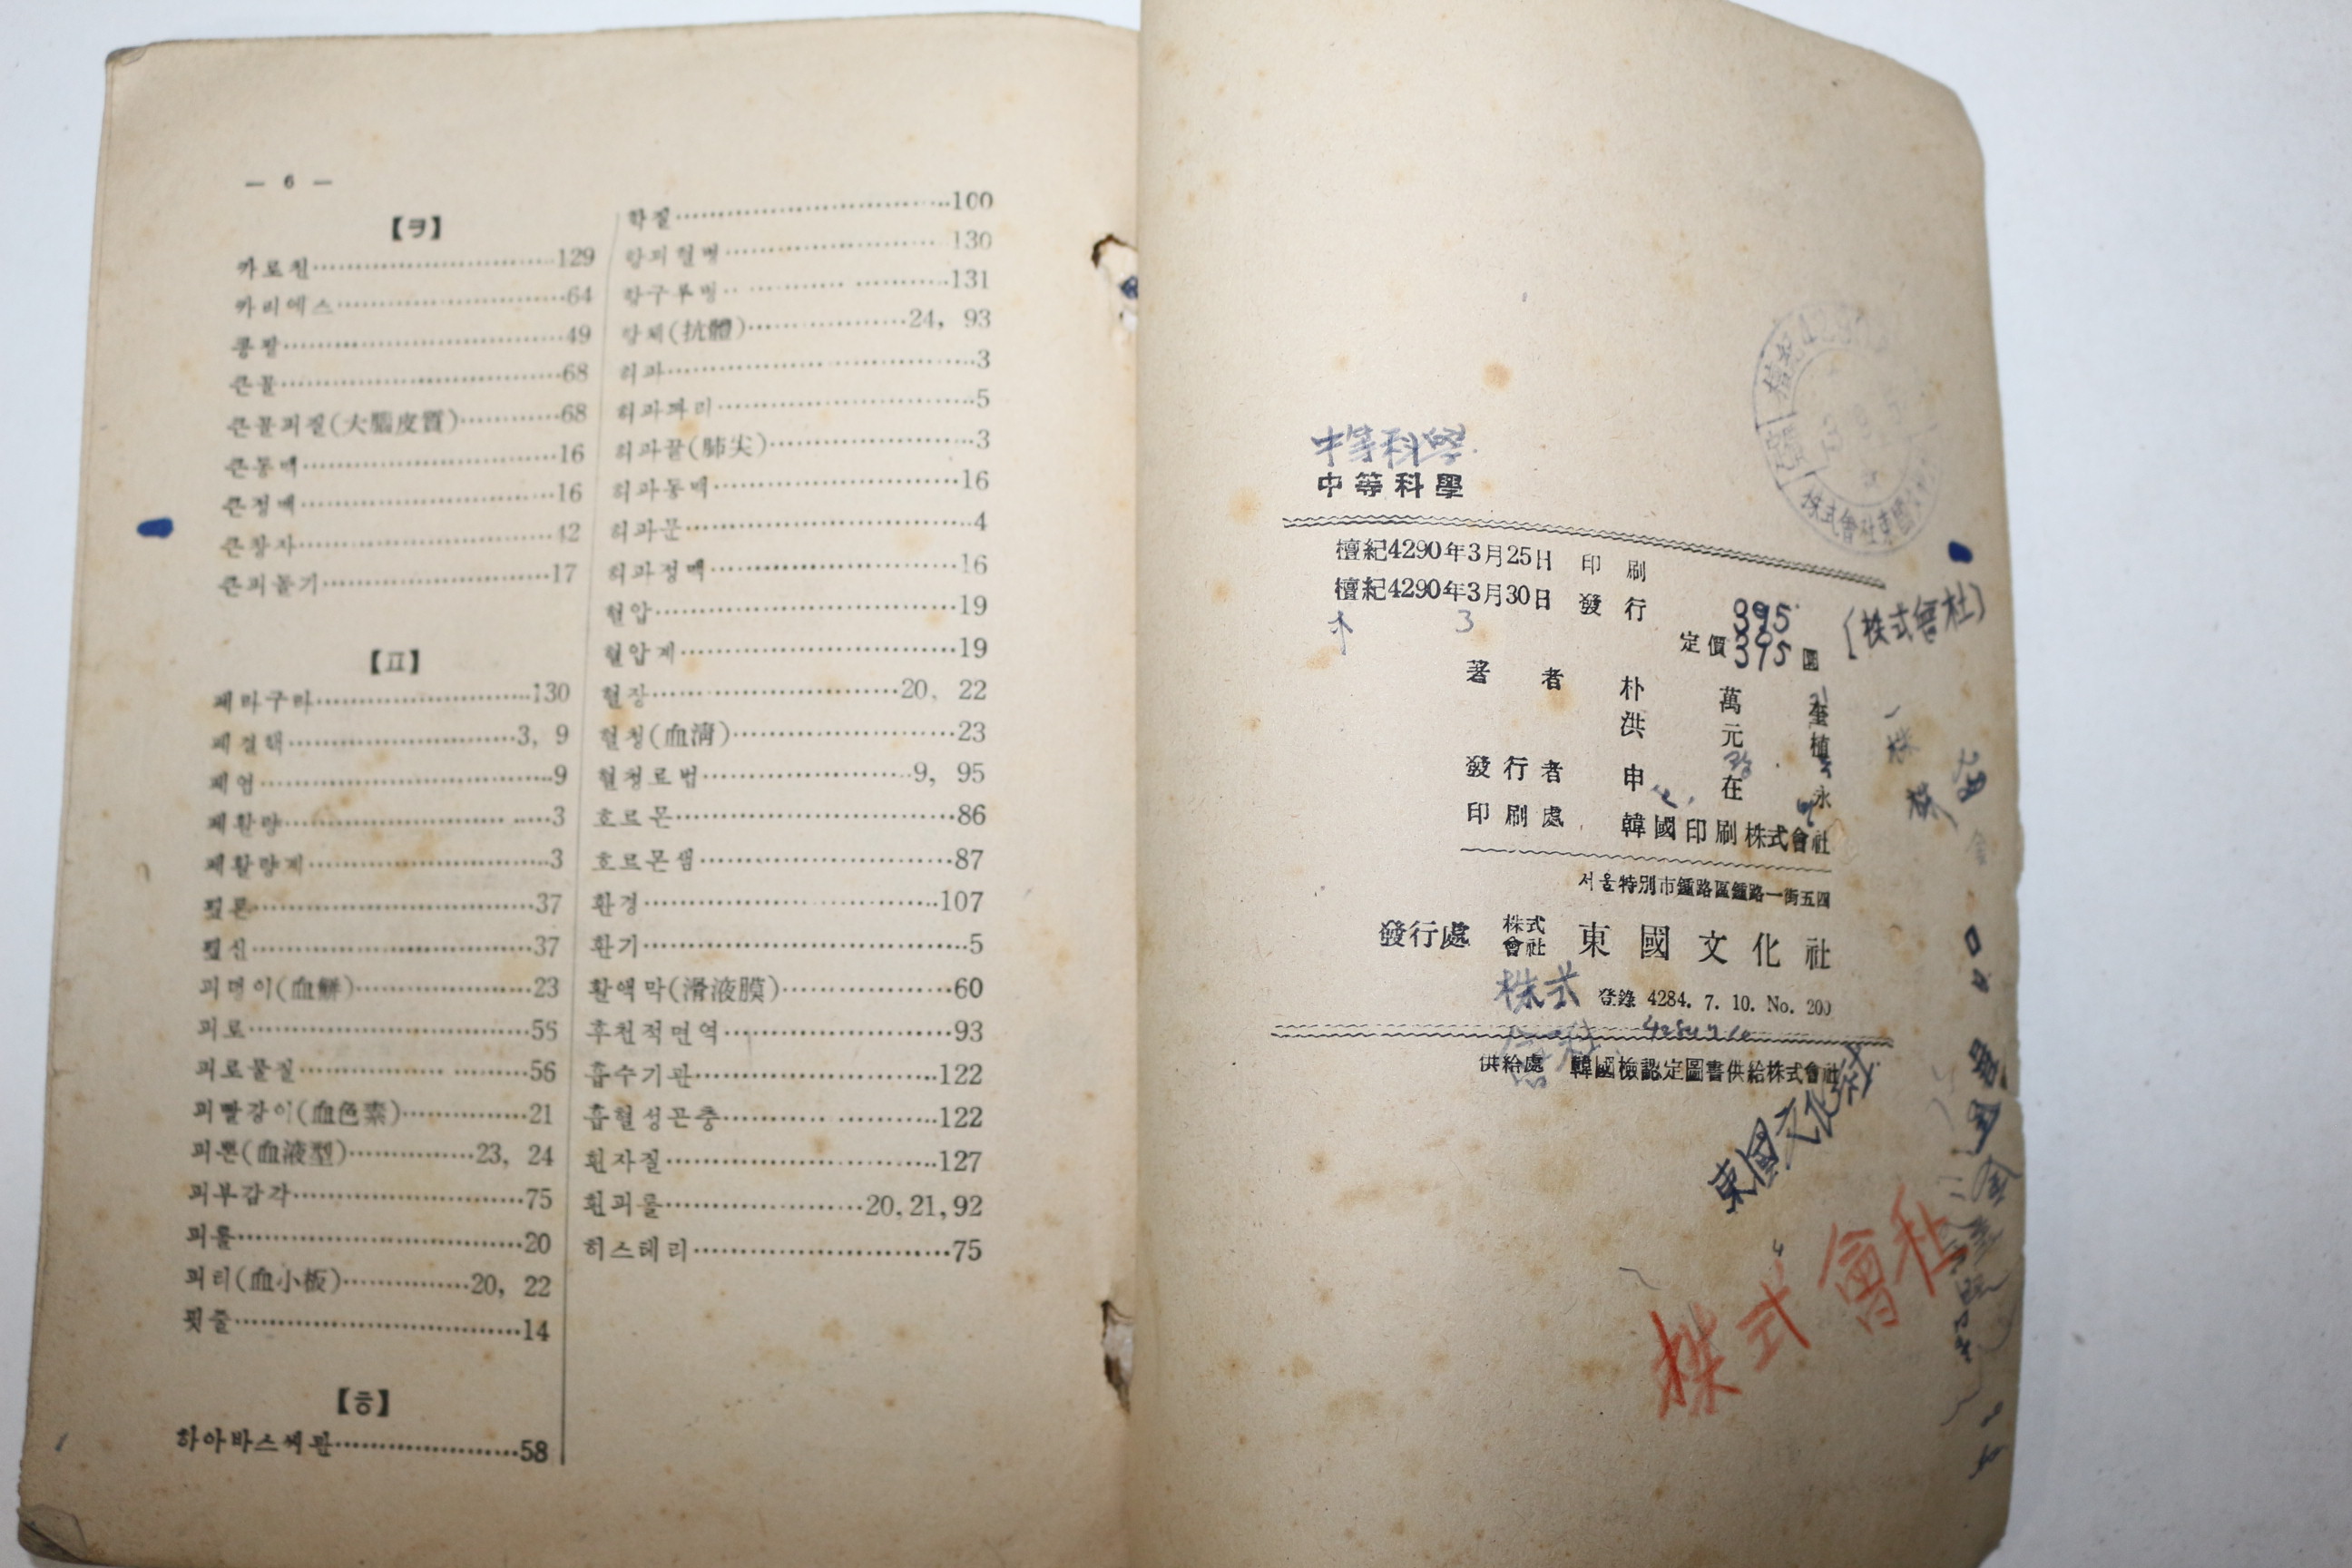 — 6 —
【ㅋ】
카로친…………129
카리에스…………64
콩팥…………49
큰골…………68
큰골피질(大腦皮質)…………68
큰동맥…………16
큰정맥…………16
큰창자…………42
큰피돌기…………17
【ㅍ】
페라구라…………130
폐결핵…………3, 9
폐염…………9
폐활량…………3
폐활량계…………3
펩톤…………37
펩신…………37
피떵이(血餠)…………23
피로…………56
피로물질…………56
피빨강이(血色素)…………21
피뽄(血液型)…………23, 24
피부감각…………75
피톨…………20
피티(血小板)…………20, 22
핏줄…………14
【ㅎ】
하아바스씨관…………58
학질…………100
항피헐병…………130
항구루병…………131
항체(抗體)…………24, 93
허파…………3
허파꽈리…………5
허파끝(肺尖)…………3
허파동맥…………16
허파문…………4
허파정맥…………16
혈압…………19
혈압계…………19
혈장…………20, 22
혈청(血淸)…………23
혈청료법…………9, 95
호르몬…………86
호르몬샘…………87
환경…………107
환기…………5
활액막(滑液膜)…………60
후천적면역…………93
흡수기관…………122
흡혈성곤충…………122
흰자질…………127
흰피톨…………20, 21, 92
히스테리…………75
中等科學
中等科學
檀紀4290年3月25日 印刷
檀紀4290年3月30日 發行
3
395
定價395圜
(株式會社)
著者 朴萬奎
洪元植
發行者 申在永
印刷處 韓國印刷株式會社
서울特別市鍾路區鍾路一街五四
發行處 株式會社 東國文化社
株式
登錄 4284. 7. 10. No. 200
4284 7 10
供給處 韓國檢認定圖書供給株式會社
東國文化社
株式會社
株式會社東國